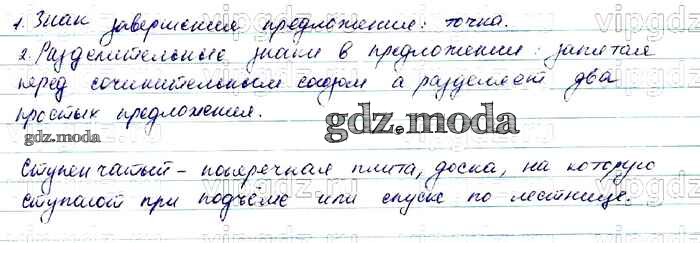 1. Знак завершения предложения: точка.
2. Разделительные знаки в предложении: запятая
перед сочинительным союзом а разделяет два
простых предложения.
gdz.moda
gdz.moda
Ступенчатый - поперечная плита, доска, на которую
ступают при подъёме или спуске по лестнице.